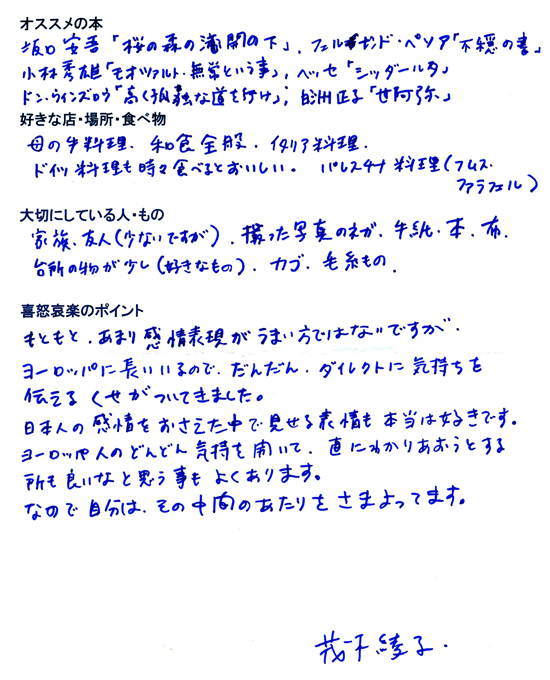 オススメの本
坂口安吾「桜の森の満開の下」、フェルナンド・ペソア「不穏の書」
小林秀雄「モオツァルト・無常という事」、ヘッセ「シッダールタ」
ドン・ウィンズロウ「高く孤独な道を行け」、白洲正子「世阿弥」
好きな店・場所・食べ物
母の手料理、和食全般、イタリア料理、
ドイツ料理も時々食べるとおいしい。パレスチナ料理(フムス・
ファラフェル)
大切にしている人・もの
家族、友人(少ないですが)、撮った写真のネガ、手紙、本、布、
台所の物が少し(好きなもの)、カゴ、毛糸もの、
喜怒哀楽のポイント
もともと、あまり感情表現がうまい方ではないですが、
ヨーロッパに長くいるので、だんだん、ダイレクトに気持ちを
伝えるくせがついてきました。
日本人の感情をおさえた中で見せる表情も本当は好きです。
ヨーロッパ人のどんどん気持を開いて、直にわかりあおうとする
所も良いなと思う事もよくあります。
なので自分は、その中間のあたりをさまよってます。
茂下綾子.